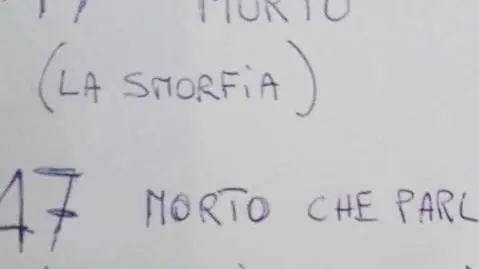 47 MORTO
(LA SMORFiA)
47 MORTO CHE PARL